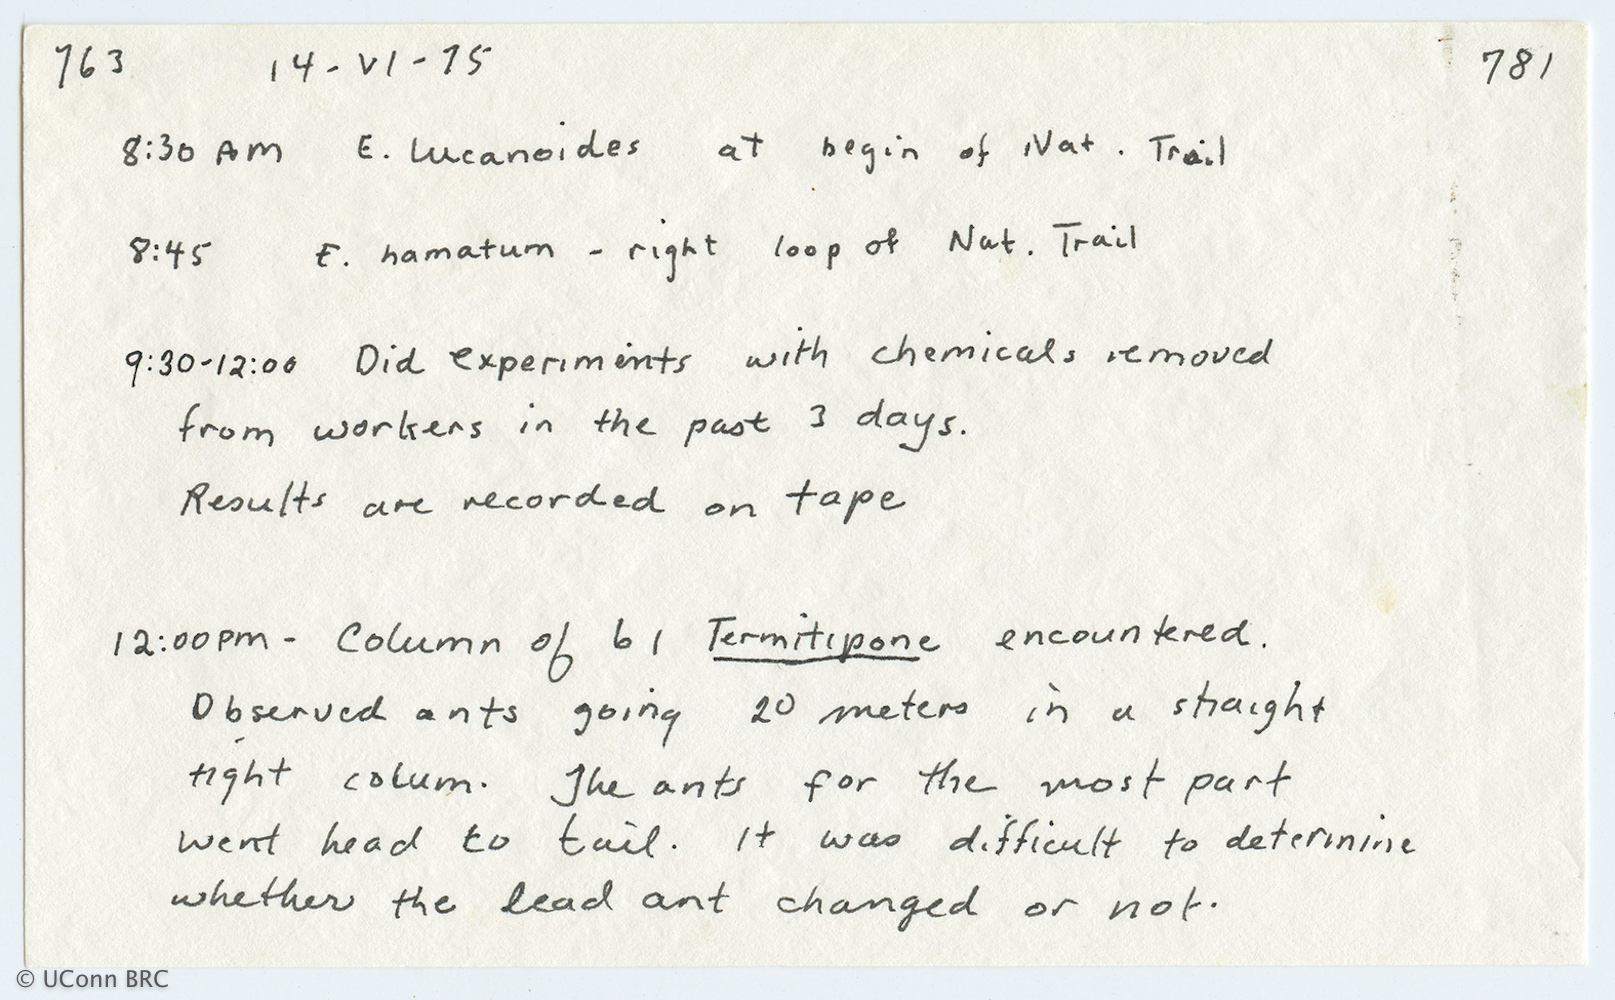 763 14-VI-75 781
8:30 AM E. lucanoides at begin of Nat. Trail
8:45 E. hamatum - right loop of Nat. Trail
9:30-12:00 Did experiments with chemicals removed
from workers in the past 3 days.
Results are recorded on tape
12:00pm - Column of 61 Termitipone encountered.
Observed ants going 20 meters in a straight
tight colum. The ants for the most part
went head to tail. It was difficult to determine
whether the lead ant changed or not.
© UConn BRC